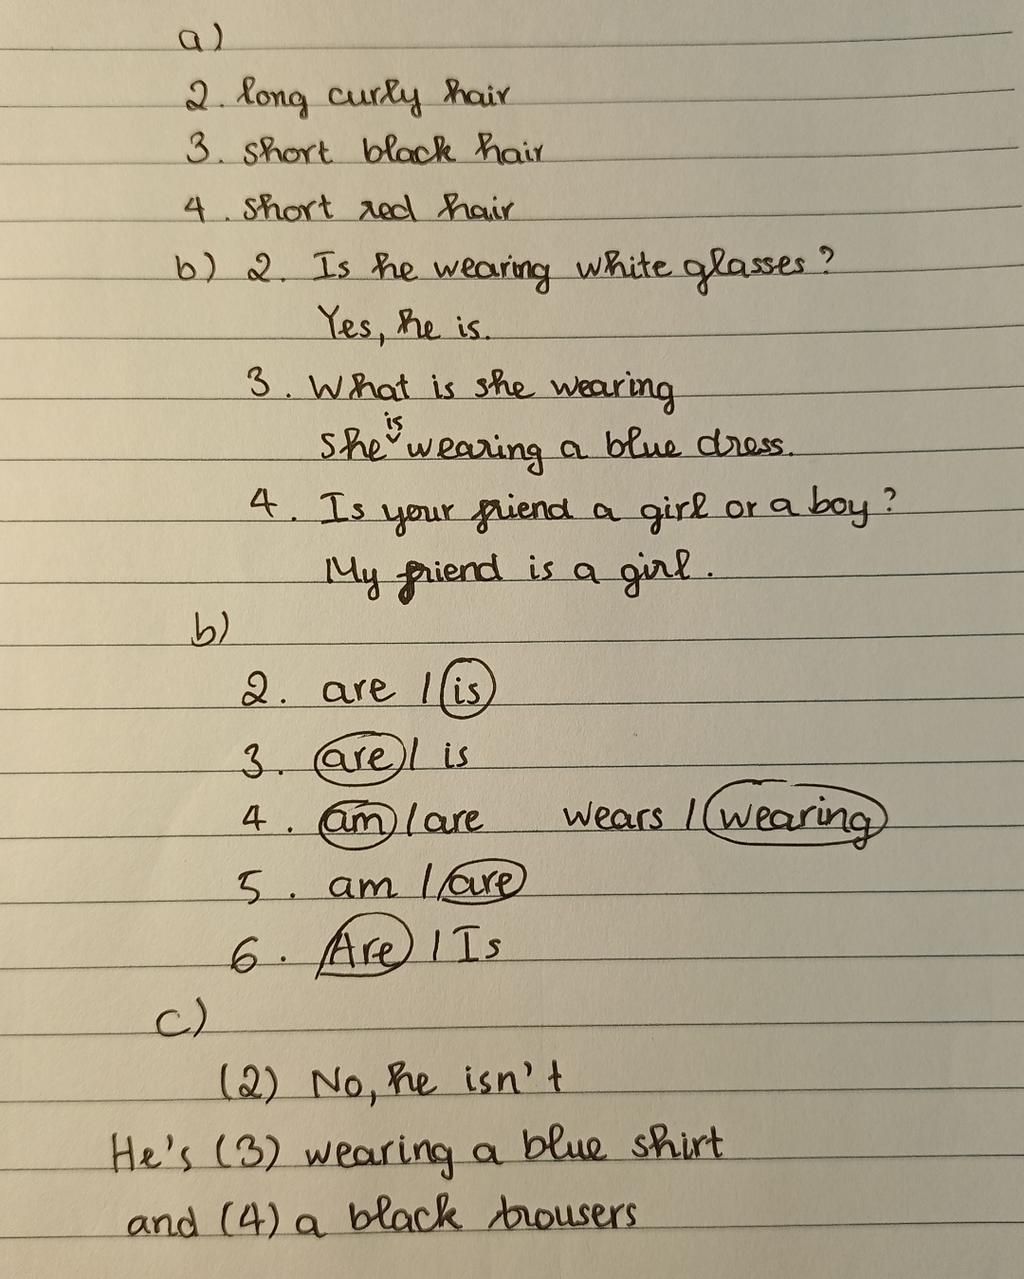 a)
2. long curly hair
3. short black hair
4. short red hair
b) 2. Is he wearing white glasses?
Yes, he is.
3. What is she wearing
She is wearing a blue dress.
4. Is your friend a girl or a boy?
My friend is a girl.
b)
2. are / is
3. are / is
4. am / are wears / wearing
5. am / are
6. Are / Is
c)
(2) No, he isn't
He's (3) wearing a blue shirt
and (4) a black trousers